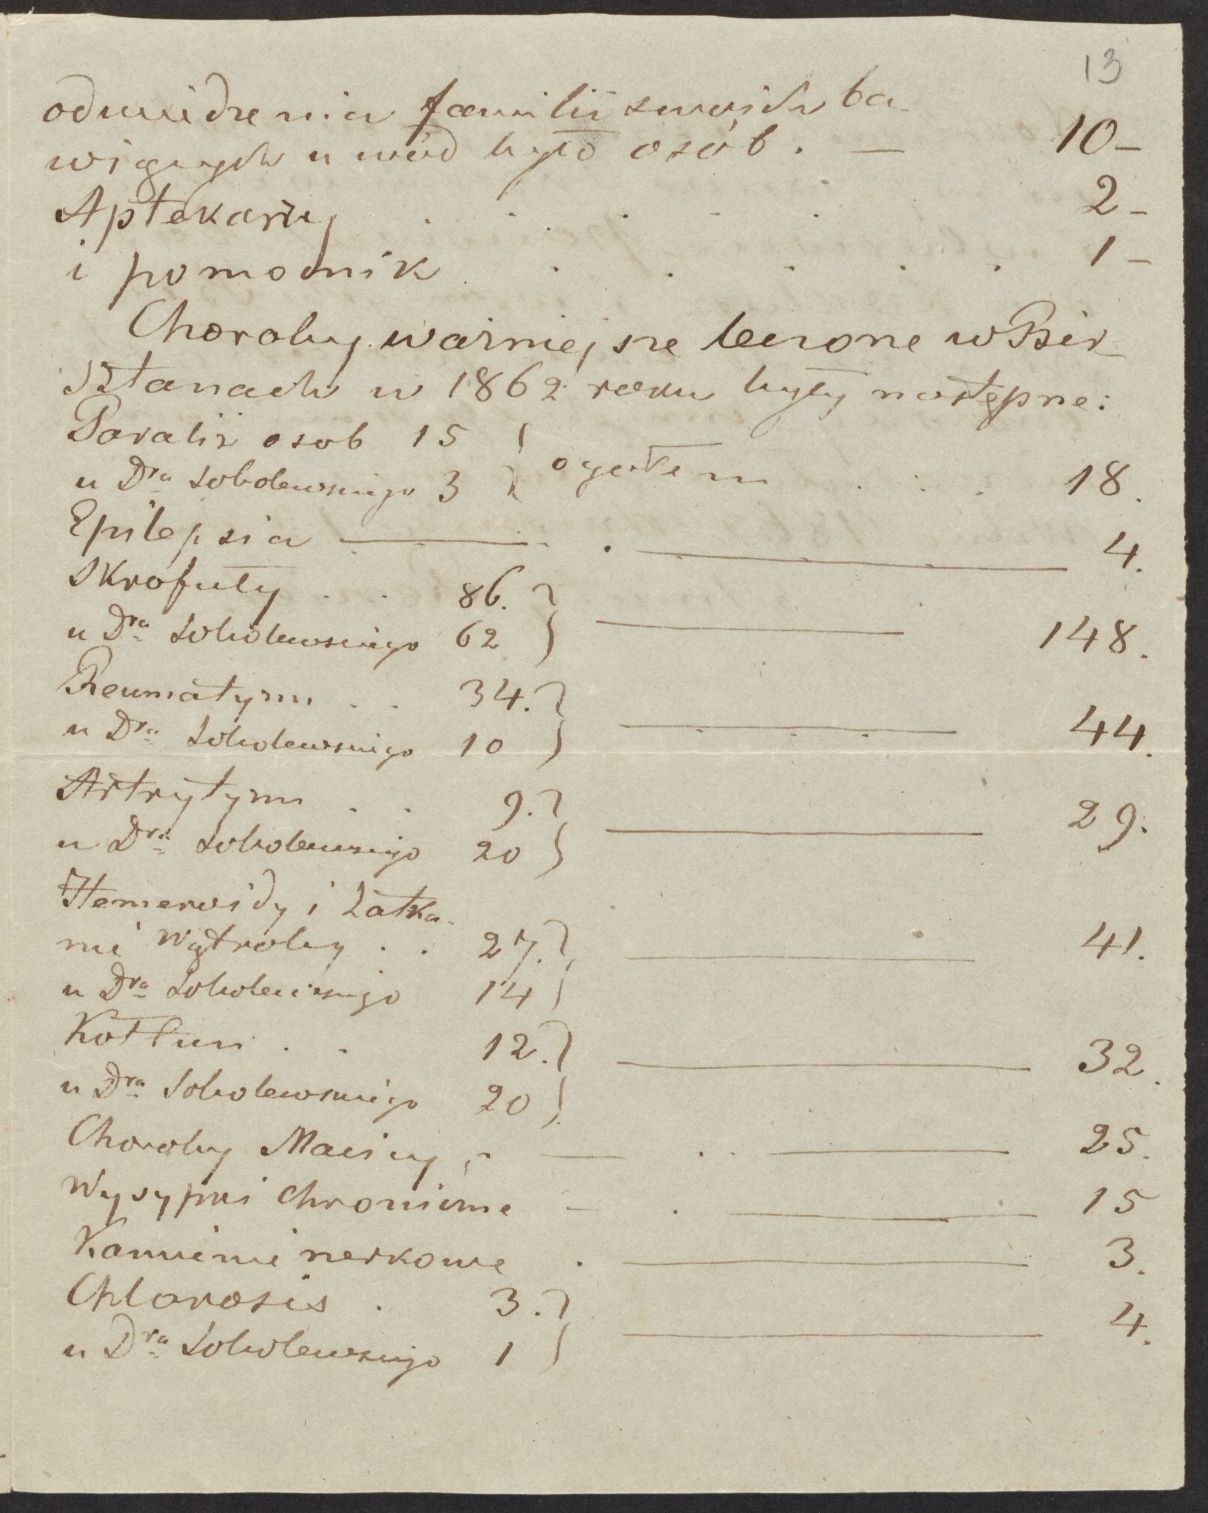 13
odwiedzenia familii swoich ba-
wiących u wód było osób. — 10 –
Aptekarzy . . . . . 2 –
i pomocnik . . . . . . 1 –
Choroby ważniejsze leczone w Bir-
sztanach w 1862 roku były następne:
Paraliż osob 15 } ogółem . . . 18.
u Dra Sobolewskiego 3 }
Epilepsia — . — 4.
Skrofuły . . 86. } — 148.
u Dra Sobolewskiego 62 }
Reumatyzm . . 34. } — 44.
u Dra Sobolewskiego 10 }
Artrytyzm . . 9. } — 29.
u Dra Sobolewskiego 20 }
Hemeroidy i Zatka-
nie Wątroby . . 27. } — 41.
u Dra Sobolewskiego 14 }
Kołtun . . 12. } — 32.
u Dra Sobolewskiego 20 }
Choroby Macicy . — . . — 25.
Wysypki chroniczne – . — 15
Kamienie nerkowe . — 3.
Chlorosis . 3. } — 4.
u Dra Sobolewskiego 1 }